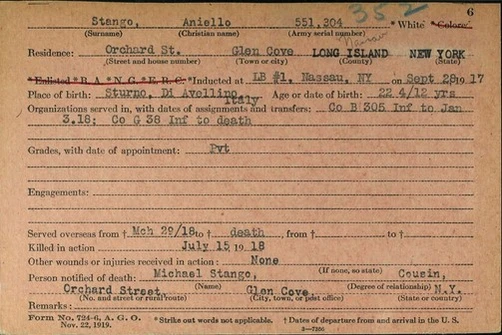 352
6
Stango, Aniello 551,204 * White * Colored
(Surname) (Christian name) (Army serial number)
Nassau
Residence: Orchard St. Glen Cove LONG ISLAND NEW YORK
(Street and house number) (Town or city) (County) (State)
* Enlisted * R. A. * N. G. * E. R. C. * Inducted at LB #1, Nassau, NY on Sept 28 19 17
Place of birth: Sturno, Di Avellino Italy Age or date of birth: 22 4/12 yrs
Organizations served in, with dates of assignments and transfers: Co B 305 Inf to Jan
3.18; Co G 38 Inf to death
Grades, with date of appointment: Pvt
Engagements:
Served overseas from † Mch 29/18 to † death, from † to †
Killed in action July 15 19 18
Other wounds or injuries received in action: None
(If none, so state)
Person notified of death: Michael Stango, Cousin,
(Name) (Degree of relationship)
Orchard Street, Glen Cove N.Y.
(No. and street or rural route) (City, town, or post office) (State or country)
Remarks:
Form No. 724-6, A. G. O. * Strike out words not applicable. † Dates of departure from and arrival in the U. S.
Nov. 22, 1919. 3—7386